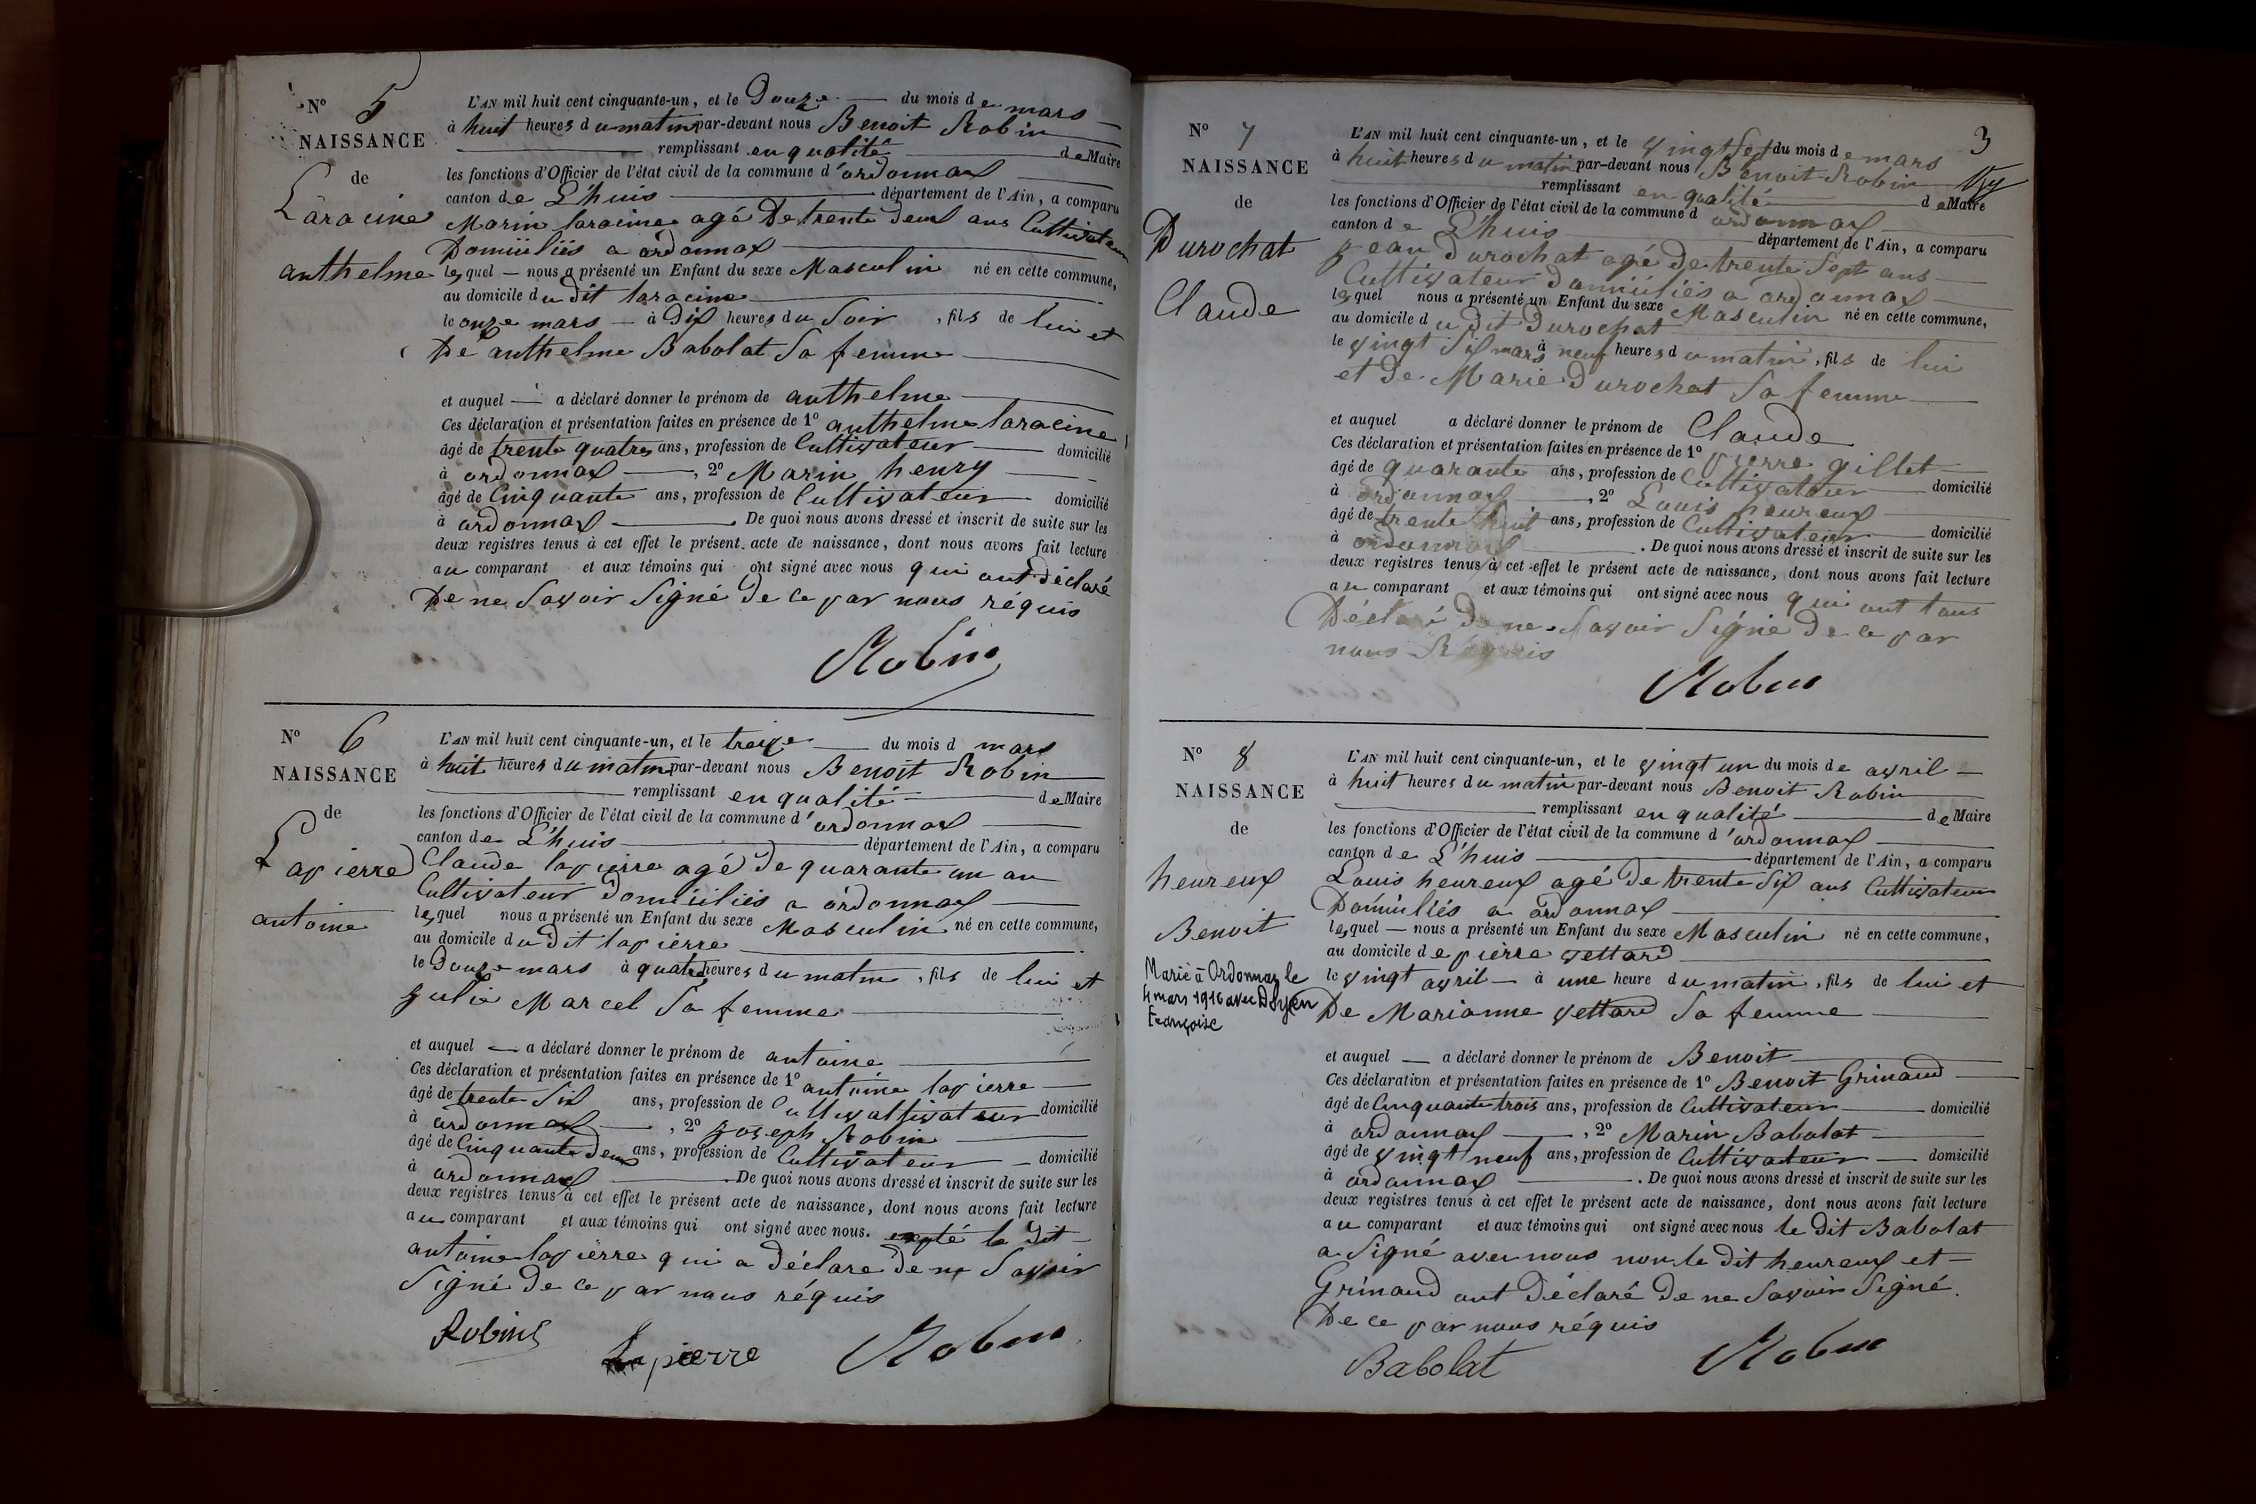 N° 5
NAISSANCE
de
Laracine
anthelme
L'AN mil huit cent cinquante-un, et le Douze du mois de mars
à huit heures du matin par-devant nous Benoit Robin
remplissant en qualité de Maire
les fonctions d'Officier de l'état civil de la commune d'ordonnax
canton de L'huis département de l'Ain, a comparu
Marin laracine agé De trente deux ans Cultivateur
Domiiliiés a ordonnax
lesquel nous a présenté un Enfant du sexe Masculin né en cette commune,
au domicile du Dit laracine
le onze mars à Dix heures du Soir, fils de lui et
De anthelme Babolat Sa femme
et auquel a déclaré donner le prénom de anthelme
Ces déclaration et présentation faites en présence de 1° anthelme laracine
âgé de trente quatre ans, profession de Cultivateur domicilié
à ordonnax, 2° Marin henry
âgé de Cinquante ans, profession de Cultivateur domicilié
à ordonnax. De quoi nous avons dressé et inscrit de suite sur les
deux registres tenus à cet effet le présent acte de naissance, dont nous avons fait lecture
au comparant et aux témoins qui ont signé avec nous qui ont Déclaré
De ne Savoir Signé De ce par nous réquis
Robin
N° 6
NAISSANCE
de
Lapierre
antoine
L'AN mil huit cent cinquante-un, et le treize du mois d mars
à huit heures du matin par-devant nous Benoit Robin
remplissant en qualité de Maire
les fonctions d'Officier de l'état civil de la commune d'ordonnax
canton de L'huis département de l'Ain, a comparu
Claude lapierre agé De quarante un an
Cultivateur Domiiliiés a ordonnax
lesquel nous a présenté un Enfant du sexe Masculin né en cette commune,
au domicile du Dit lapierre
le Douze mars à quatre heures du matin, fils de lui et
Julie Marcel Sa femme
et auquel a déclaré donner le prénom de antoine
Ces déclaration et présentation faites en présence de 1° antoine lapierre
âgé de trente Six ans, profession de Cultivattivateur domicilié
à ordonnax, 2° Joseph Robin
âgé de Cinquante Deux ans, profession de Cultivateur domicilié
à ordonnax. De quoi nous avons dressé et inscrit de suite sur les
deux registres tenus à cet effet le présent acte de naissance, dont nous avons fait lecture
au comparant et aux témoins qui ont signé avec nous. exepté le Dit
antoine lapierre qui a Déclare De ne Savoir
Signé De ce par nous réquis
Robin
Lapierre
Robin
3
N° 7
NAISSANCE
de
Durochat
Claude
L'AN mil huit cent cinquante-un, et le vingt Sept du mois de mars
à huit heures du matin par-devant nous Benoit Robin
remplissant en qualité de Maire
les fonctions d'Officier de l'état civil de la commune d ordonnax
canton de L'huis département de l'Ain, a comparu
Jean Durochat agé De trente Sept ans
Cultivateur Domiiliiés a ordonnax
lesquel nous a présenté un Enfant du sexe Masculin né en cette commune,
au domicile du Dit Durochat
le vingt Six mars à neuf heures du matin, fils de lui
et De Marie Durochat Sa femme
et auquel a déclaré donner le prénom de Claude
Ces déclaration et présentation faites en présence de 1° pierre gillet
âgé de quarante ans, profession de Cultivateur domicilié
à ordonnax, 2° Louis heureux
âgé de trente huit ans, profession de Cultivateur domicilié
à ordonnax. De quoi nous avons dressé et inscrit de suite sur les
deux registres tenus à cet effet le présent acte de naissance, dont nous avons fait lecture
au comparant et aux témoins qui ont signé avec nous qui ont tous
Déclaré De ne Savoir Signé De ce par
nous Réquis
Robin
N° 8
NAISSANCE
de
heureux
Benoit
Marié à Ordonnaz le
4 mars 1916 avec Doyen
Françoise
L'AN mil huit cent cinquante-un, et le vingt un du mois de avril
à huit heures du matin par-devant nous Benoit Robin
remplissant en qualité de Maire
les fonctions d'Officier de l'état civil de la commune d'ordonnax
canton de L'huis département de l'Ain, a comparu
Louis heureux agé De trente Six ans Cultivateur
Domiiliés a ordonnax
lesquel nous a présenté un Enfant du sexe Masculin né en cette commune,
au domicile de pierre vettard
le vingt avril à une heure du matin, fils de lui et
De Marianne vettard Sa femme
et auquel a déclaré donner le prénom de Benoit
Ces déclaration et présentation faites en présence de 1° Benoit Grinaud
âgé de Cinquante trois ans, profession de Cultivateur domicilié
à ordonnax, 2° Marin Babolat
âgé de vingt neuf ans, profession de Cultivateur domicilié
à ordonnax. De quoi nous avons dressé et inscrit de suite sur les
deux registres tenus à cet effet le présent acte de naissance, dont nous avons fait lecture
au comparant et aux témoins qui ont signé avec nous le Dit Babolat
a Signé avec nous non le Dit heureux et
Grinaud ont Déclaré De ne Savoir Signé
De ce par nous réquis
Babolat
Robin